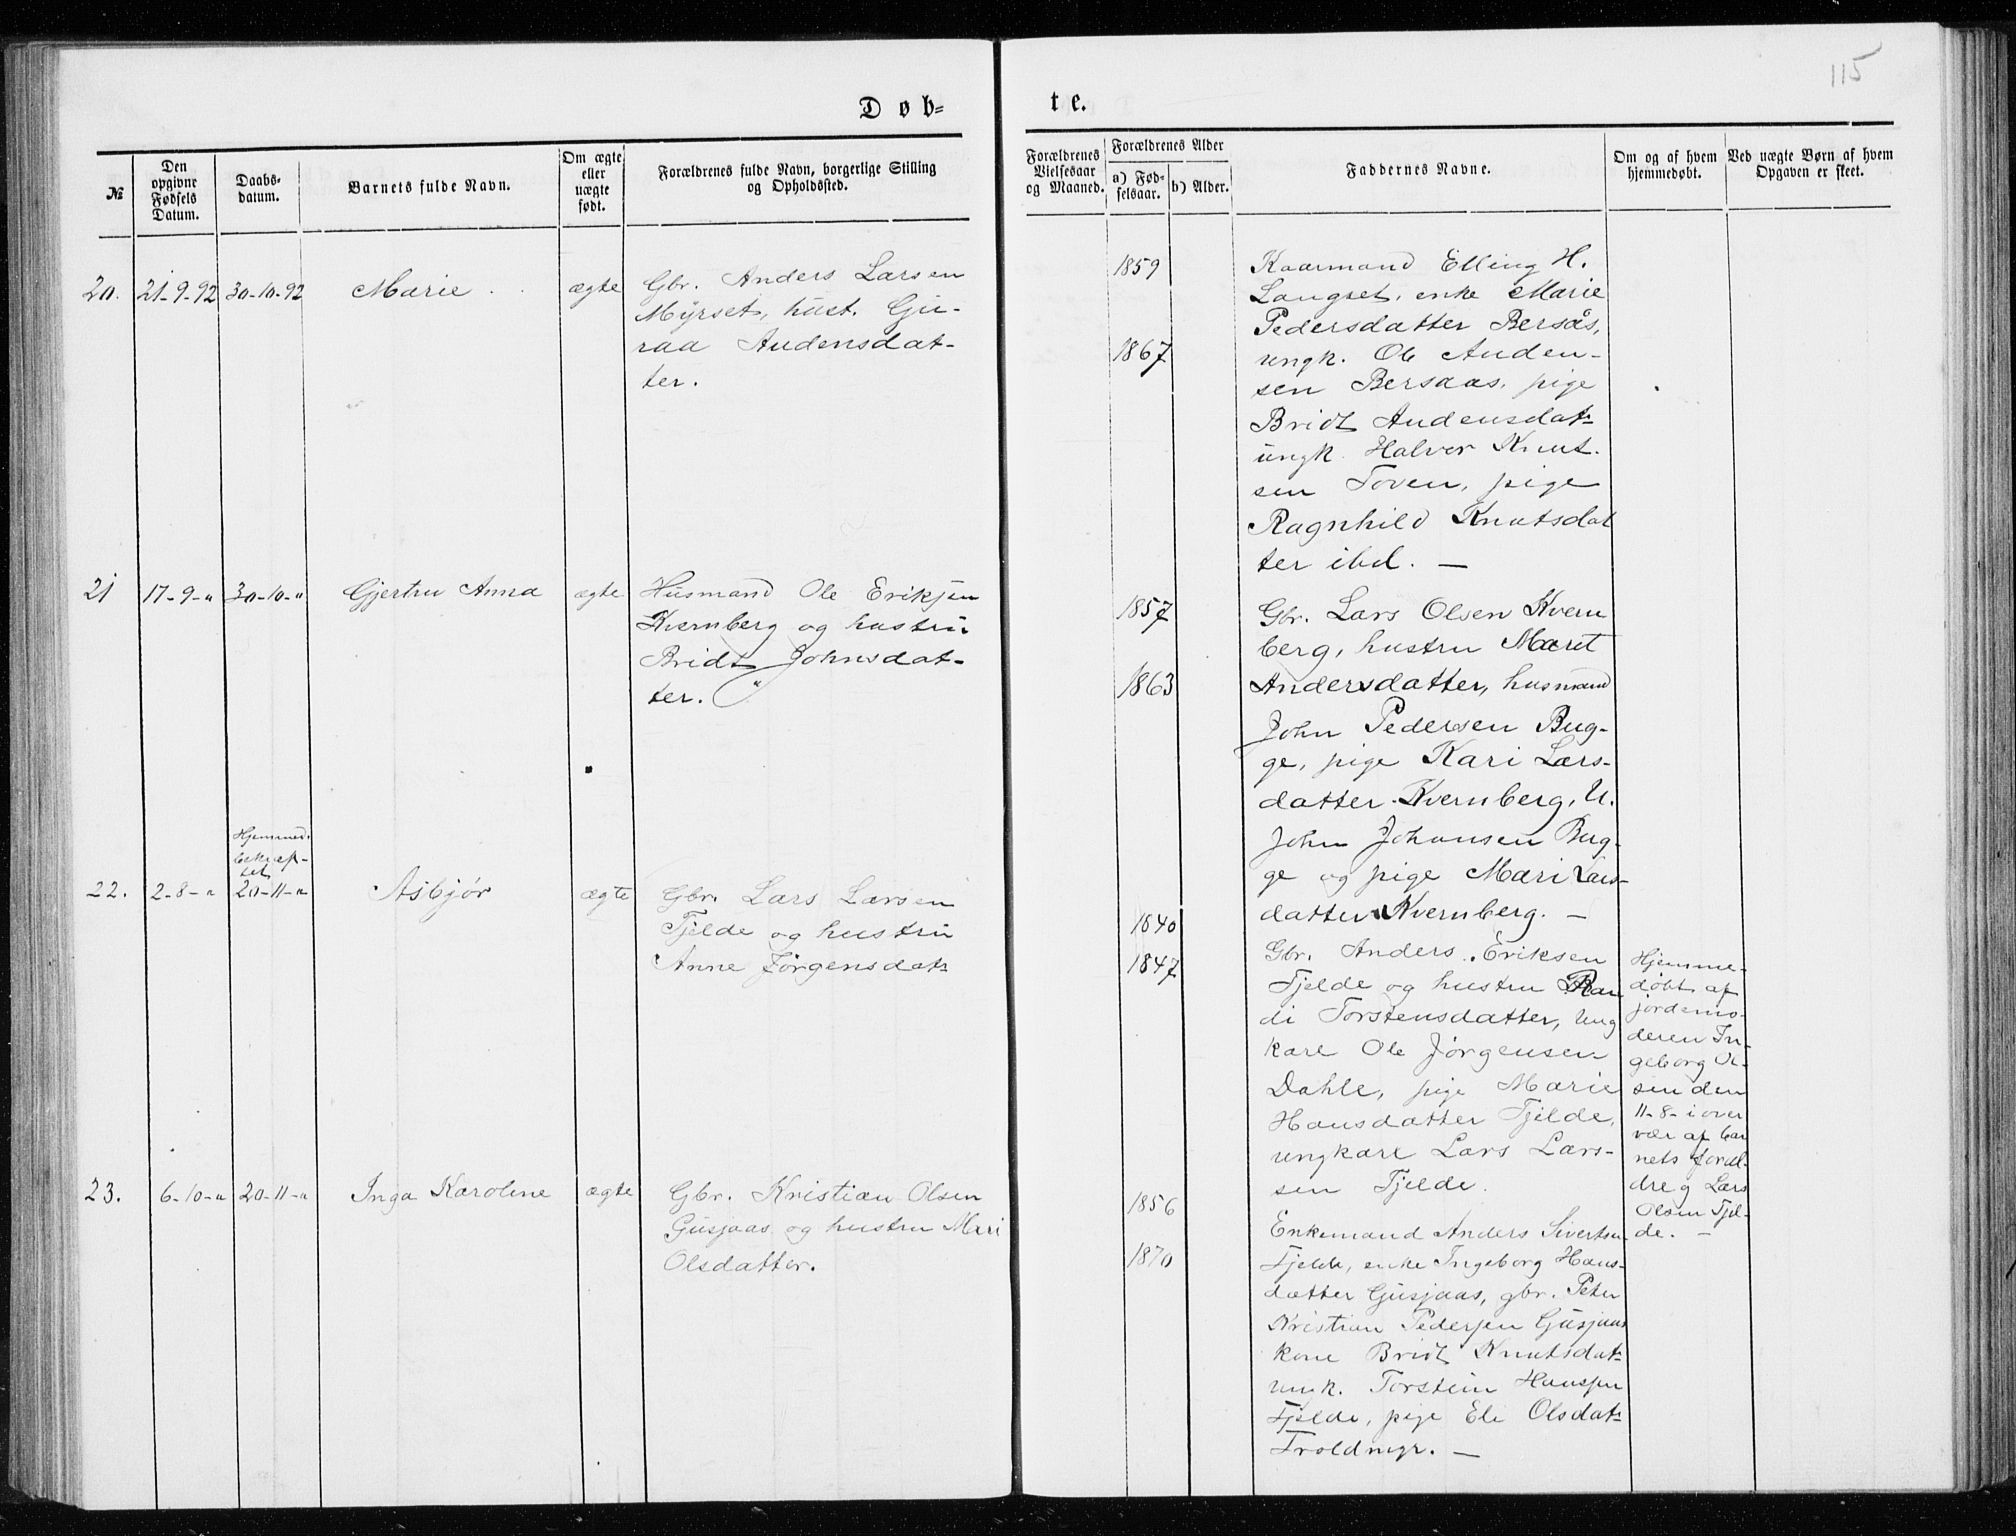 115
Døb-
te.
№
Den
opgivne
Fødsels
Datum.
Daabs-
datum.
Barnets fulde Navn.
Om ægte
eller
uægte
født.
Forældrenes fulde Navn, borgerlige Stilling
og Opholdssted.
Forældrenes
Vielsesaar
og Maaned.
Forældrenes Alder
a) Fød-
selsaar.
b) Alder.
Faddernes Navne.
Om og af hvem
hjemmedøbt.
Ved uægte Børn af hvem
Opgaven er skeet.
20.
21-9-92
30-10-92
Marie
ægte
Gbr. Anders Larsen
Myrset, hust. Gu-
raa Audensdat-
ter.
1859
1867
Kaarmand Elling H.
Langset, enke Marie
Pedersdatter Bersås,
ungk. Ole Auden-
sen Bersaas, pige
Bridt Audensdat:
ungk. Halvor Knut-
sen Toven, pige
Ragnhild Knutsdat
ter ibd. —
21
17-9-"
30-10-"
Gjertru Anna
ægte
Husmand Ole Eriksen
Kvernberg og hustru
Bridt Johnsdat-
ter.
1857
1863
Gbr. Lars Olsen Kvern
berg, hustru Maret
Andersdatter, husmand
John Pedersen Bug-
ge, pige Kari Lars-
datter Kvernberg, U.
John Johansen Bug-
ge og pige Mari Lars-
datter Kvernberg. —
22.
2-8-"
Hjemmed.
bekræf-
tet
20-11-"
Asbjør
ægte
Gbr. Lars Larsen
Tjelde og hustru
Anne Jørgensdat:
1840
1847
Gbr. Anders Eriksen
Tjelde og hustru Ran
di Torstensdatter, Ung
karl Ole Jørgensen
Dahle, pige Marie
Hansdatter Tjelde,
ungkarl Lars Lars-
sen Tjelde.
Hjemme-
døbt af
jordemo-
deren In-
geborg Ol-
sen den
11-8- i over
vær af bar
nets foræl-
dre og Lars
Olsen Tjel-
de. —
23.
6-10-"
20-11-"
Inga Karoline
ægte
Gbr. Kristian Olsen
Gusjaas og hustru Mari
Olsdatter.
1856
1870
Enkemand Anders Sivertsen
Tjelde, enke Ingeborg Hans-
datter Gusjaas, gbr. Peter
Kristian Pedersen Gusjaas
kone Bridt Knutsdat:
ungk. Torstein Hansen
Tjelde, pige Eli Olsdat:
Troldmyr. —